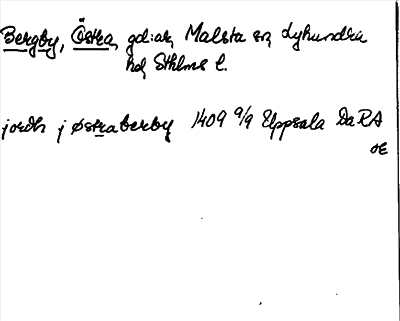 Bergby, Östra, gd:ar, Malsta sn, Lyhundra
hd, Sthlms l.
jordh j østraberby 1409 9/9 Uppsala DaRA
OE